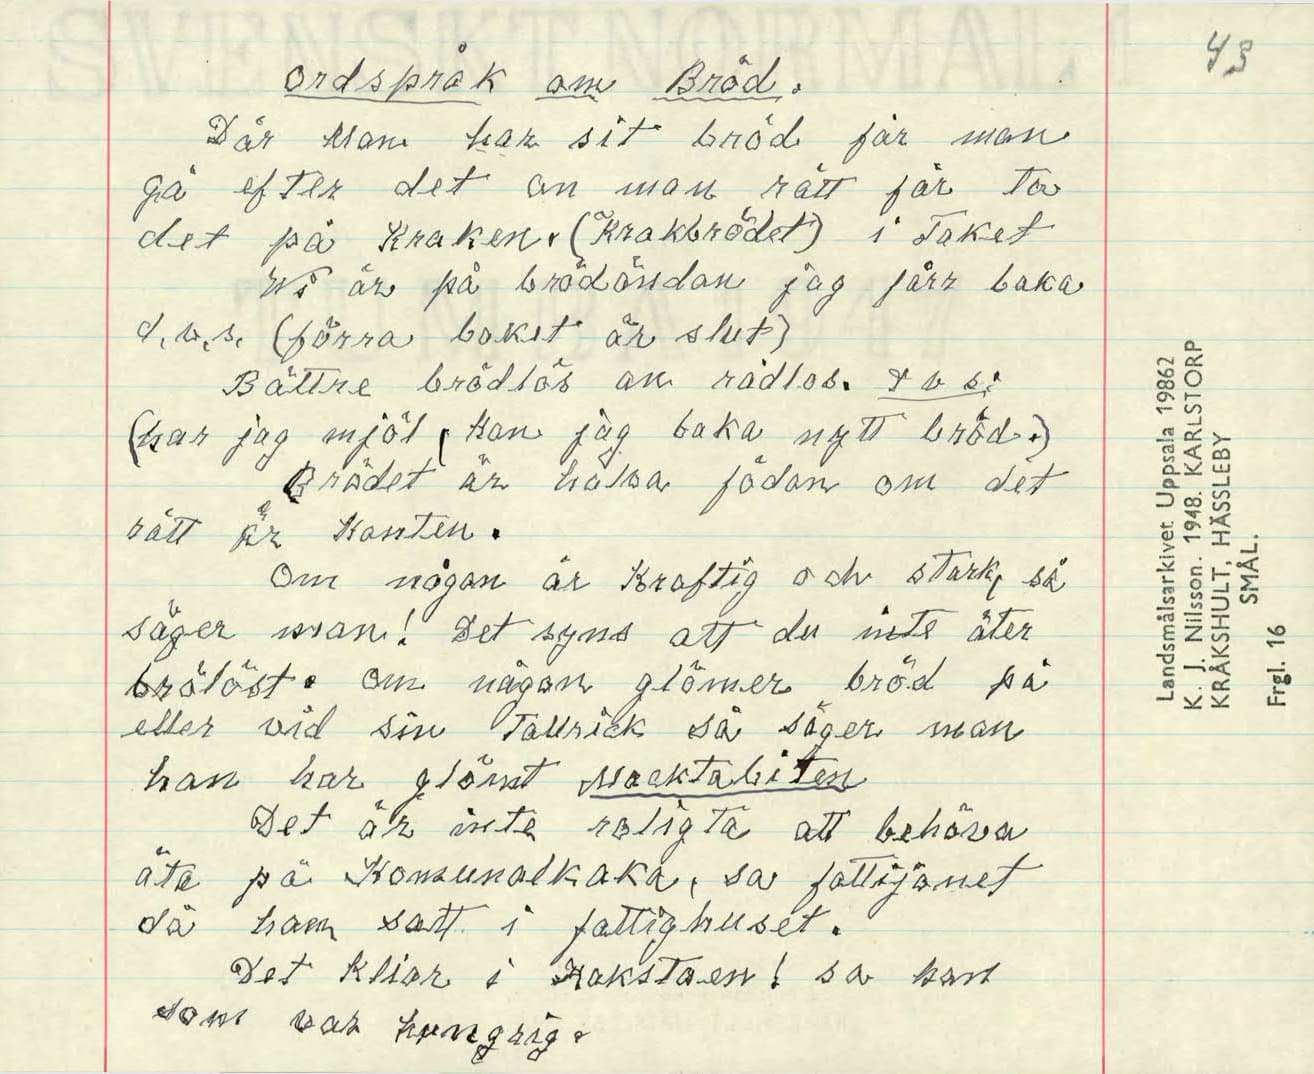 43
Ordspråk om Bröd.
Där Man har sit bröd får man
gå efter det an man rått får ta
det på Kraken. (Krakbrödet) i Taket
Wi är på brödändan jag fårr baka
d.v.s. (förra baket är slut)
Bättre brödlös än rådlos. D v s:
(har jag mjöl, kan jag baka nytt bröd.)
Brödet är halva födan om det
rått är Kanten.
Om någon är Kraftig och stark, så
säger man! Det syns att du inte äter
brölöst. Om någon glömer bröd på
eller vid sin Tallrick så säger man
han har glömt Macktabiten
Det är inte roligta att behöva
äta på Komunalkaka, sa fattijonet
då han satt i fattighuset.
Det Kliar i Kakstaen! sa han
som var hungrig.
Landsmålsarkivet Uppsala 19862
K. J. Nilsson. 1948. KARLSTORP
KRÅKSHULT, HÄSSLEBY
SMÅL.
Frgl. 16